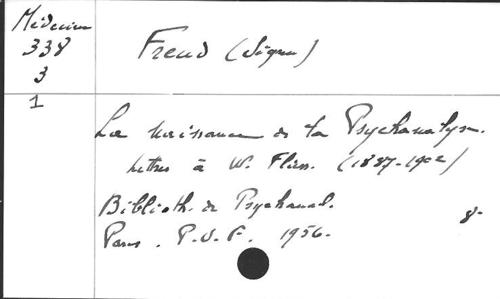 Médecine
338
3
1
Freud (Sigm)
La Naissance de la Psychanalyse.
Lettres à W. Fliess. (1887-1902)
Biblioth. de Psychanal.
8-
Paris. P.U.F. 1956-